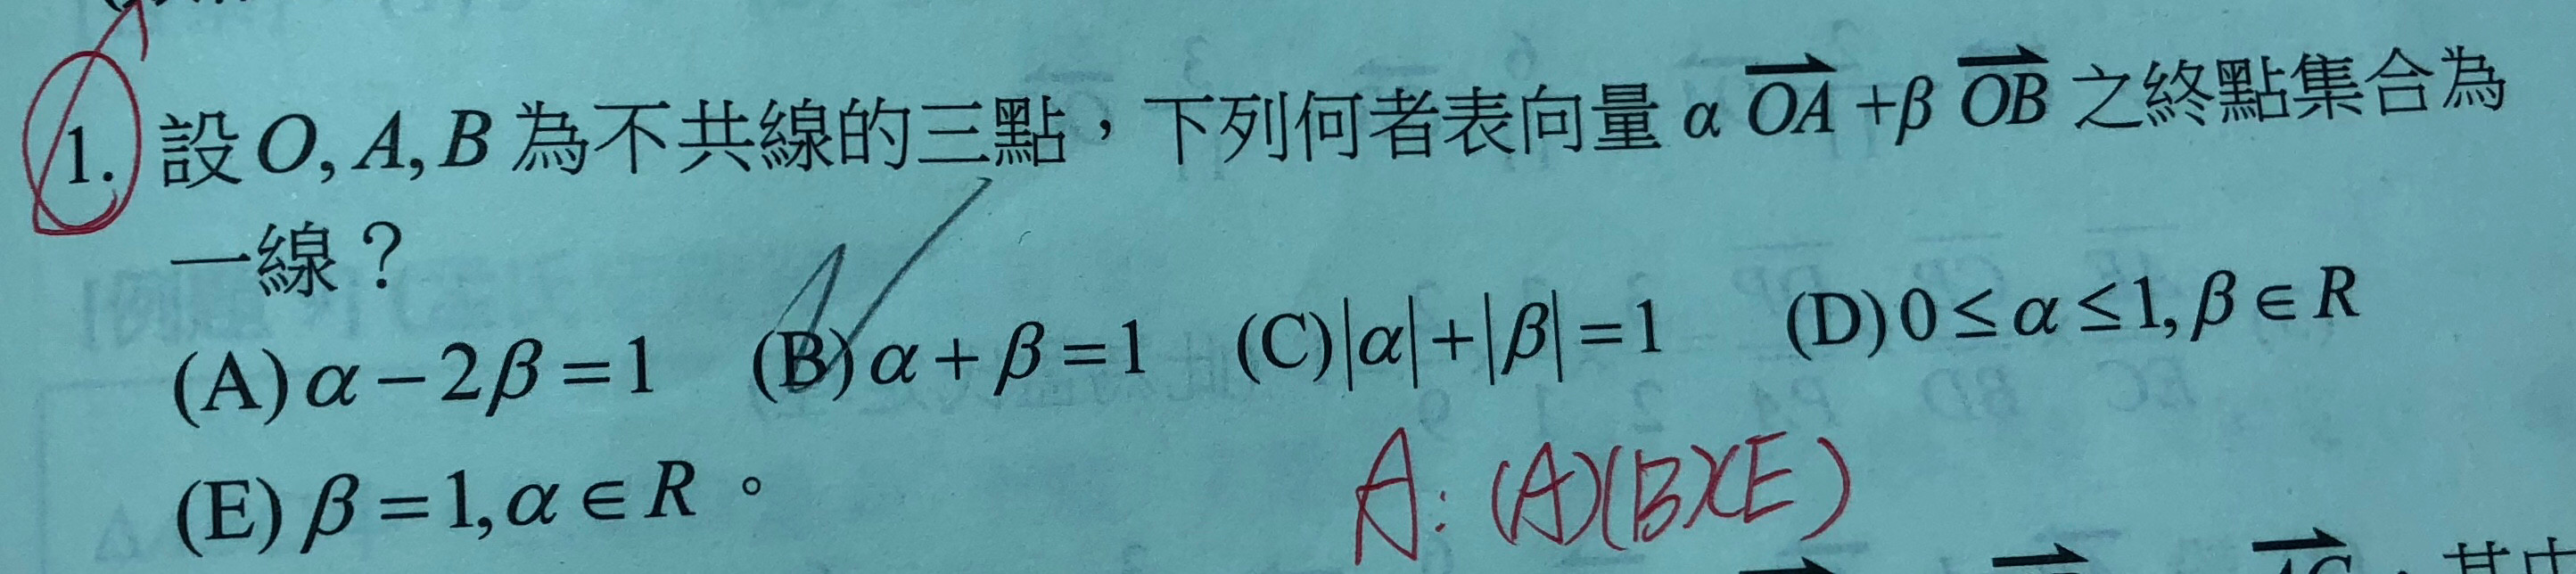 1. 設O, A, B為不共線的三點，下列何者表向量 α OA + β OB 之終點集合為
一線？
(A) α − 2β = 1 (B) α + β = 1 (C) |α| + |β| = 1 (D) 0 ≤ α ≤ 1, β ∈ R
(E) β = 1, α ∈ R。
A: (A)(B)(E)